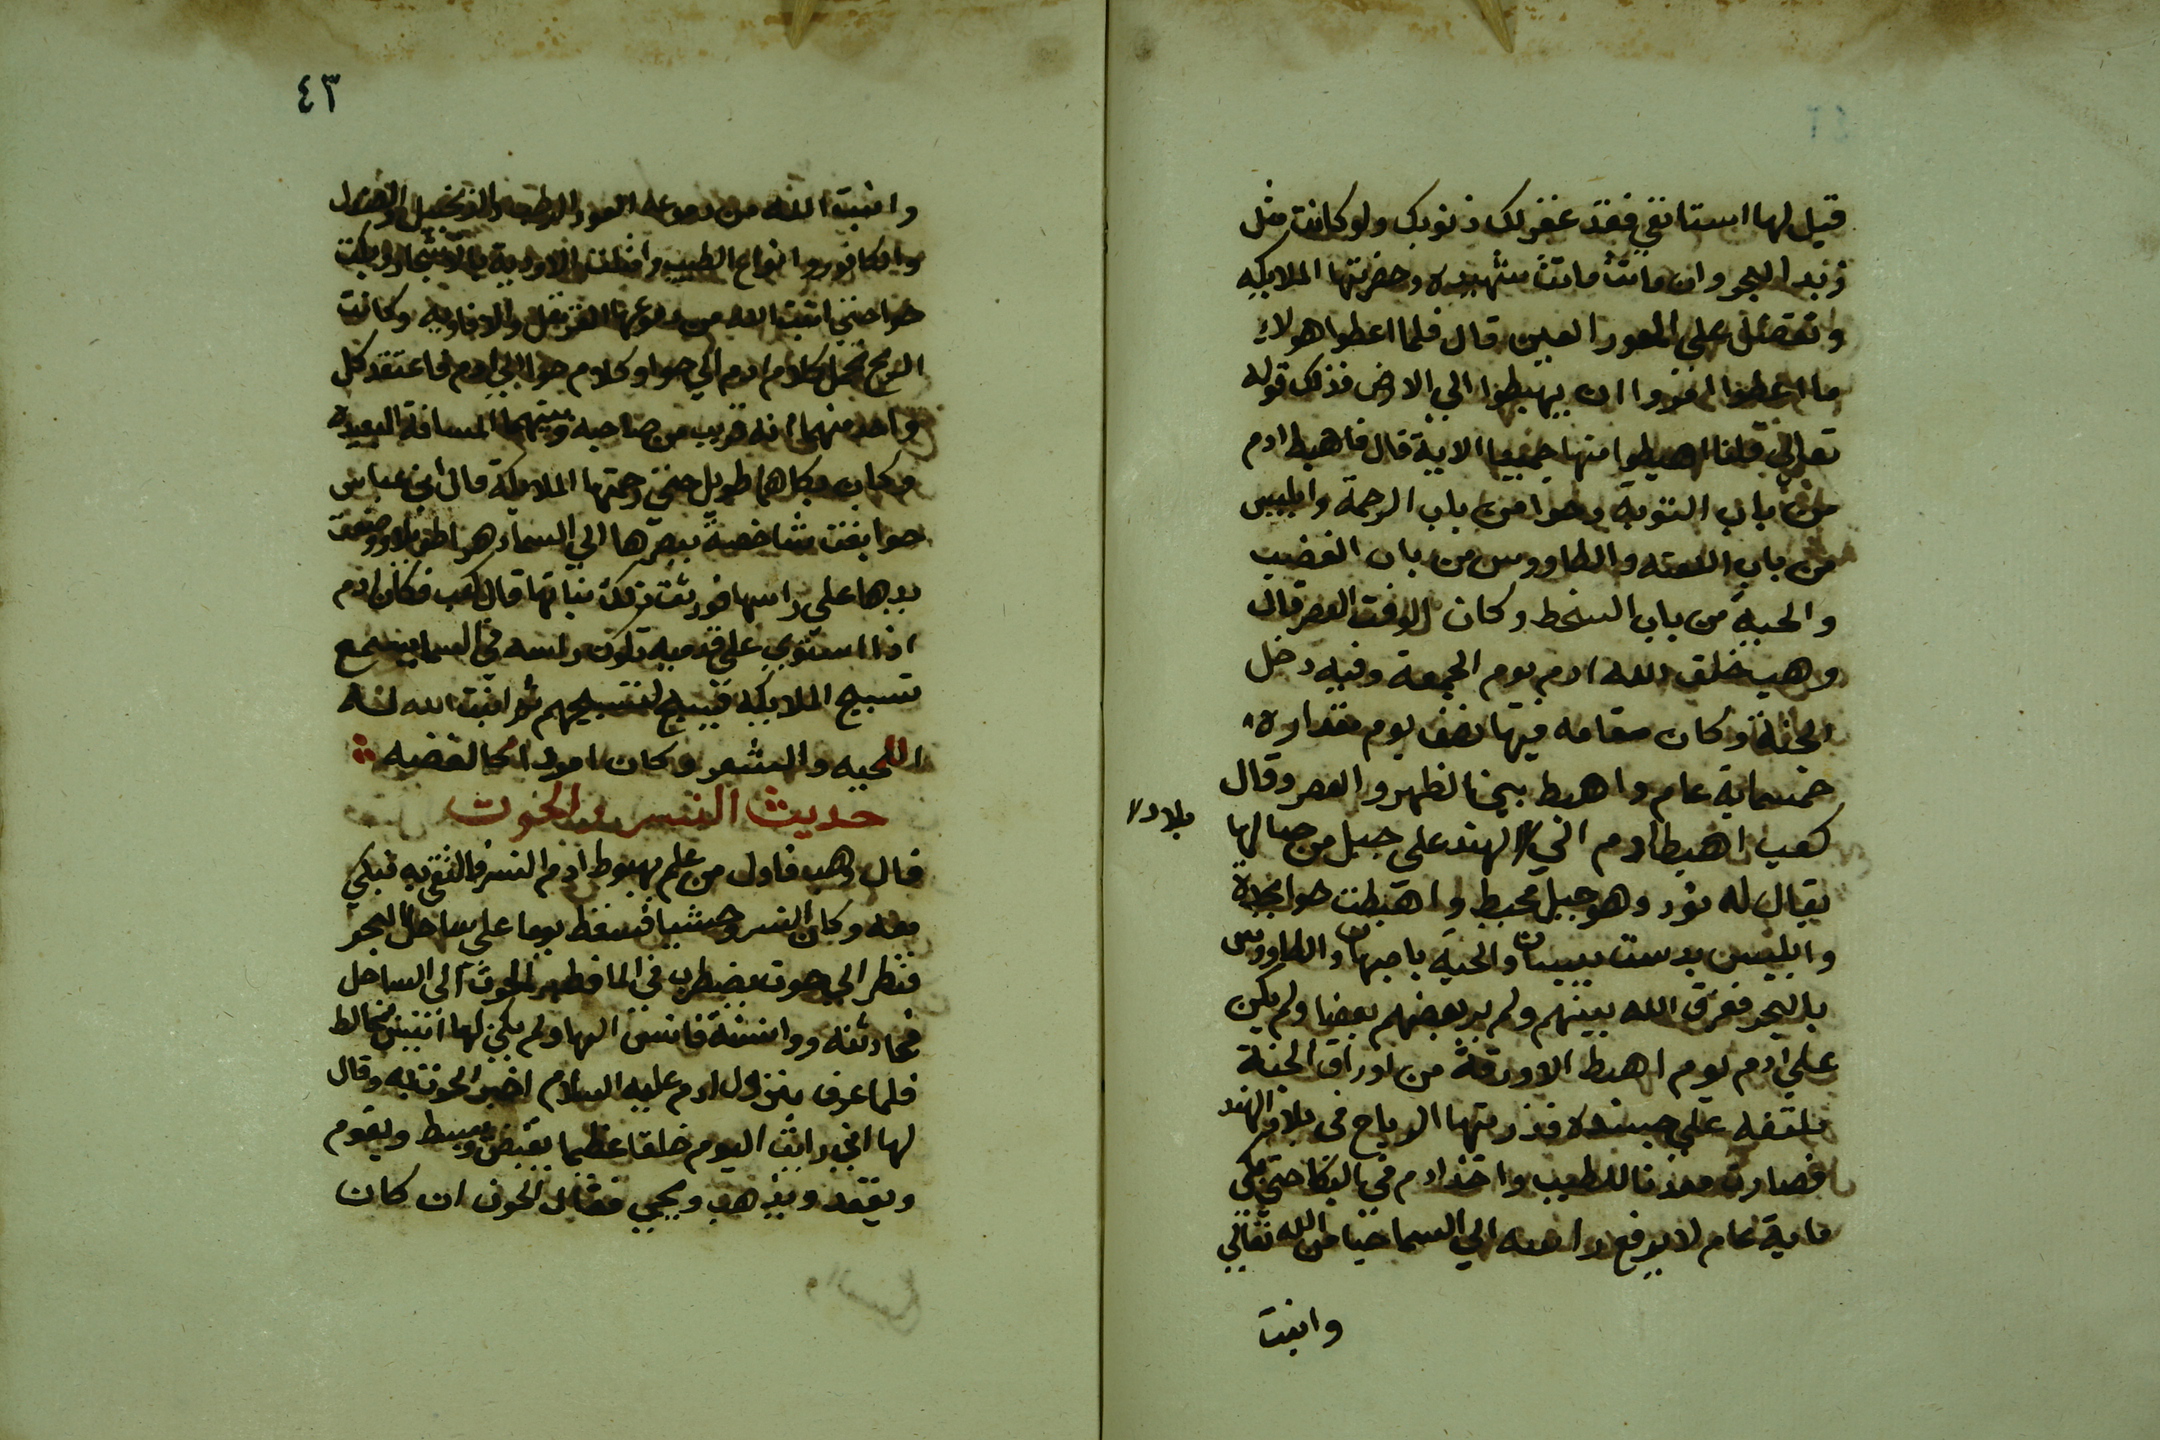 قيل لها استانفي فقد غفر لك ذنوبك ولو كانت مثل
زبد البحر وان ماتت ماتت شهيده وحضرتها الملايكه
وتفضل على الحور العين قال فلما اعطوا هولاء
ما اعطوا امروا ان يهبطوا الي الارض فذلك قوله
تعالي قلنا اهبطوا منها جميعا الاية قال فاهبط ادم
من باب التوبة وحوا من باب الرحمة وابليس
من باب اللعنه والطاووس من باب الغضب
والحية من باب السخط وكان الوقت العصر قال
وهب خلق الله ادم يوم الجمعة وفيه دخل
الجنة وكان مقامه فيها نصف يوم مقداره
خمسماية عام واهبط بين الظهر والعصر وقال
كعب اهبط ادم الي الهند على جبل من جبالها
بلاد
يقال له نود وهو جبل محيط واهبطت حوا بجدة
وابليس بدست بيسان والحية باصبهان والطاووس
بالبحر ففرق الله بينهم ولم ير بعضهم بعضا ولم يكن
علي ادم يوم اهبط الا ورقة من اوراق الجنة
ملتفه علي جسده فذرتها الرياح في بلاد الهند
فصارت معدنا للطيب واخذ ادم في البكا حتي بكي
ماية عام لا يرفع راسه الي السما حيا من الله تعالي
وانبت
٤٣
وانبت الله من دموعه العود الرطب والزنجبيل والصندل
والكافور وانواع الطيب وامتلت الاودية بالاشجار وبكت
حوا حتي انبت الله من دموعها القرنفل والافاويه وكانت
الريح تحمل كلام ادم الي حوا وكلام حوا الي ادم فاعتقد كل
واحد منهما انه قريب من صاحبه وبينهما المسافة البعيدة
وكان بكاهما طويل حتي رحمتها الملايكة قال ابن عباس
حوا بقت شاخصة ببصرها الي السماء دهرا طويلا ووضعت
يدها على راسها فورثت ذلك بناتها قال كعب فكان ادم
اذا استوي علي قدميه تكون راسه في السما يسمع
تسبيح الملايكه فيسبح لتسبيحهم ثم انبت الله له
اللحيه والشعر وكان امردا كالفضه
حديث النسر والحوت
قال وهب فاول من علم بهبوط ادم النسر فالتقي به فبكي
معه وكان النسر وحشيا فسقط يوما علي ساحل البحر
فنظر الي حوت يضطرب في الما فظهر الحوت الى الساحل
فحادثته ووانسته فانس اليها ولم يكن لها انيس مخالط
فلما عرف بنزول ادم عليه السلام اخبر الحوت به وقال
لها اني رايت اليوم خلقا عظيما يقبض ويبسط ويقوم
ويقعد ويذهب ويجي فقال الحوت ان كان